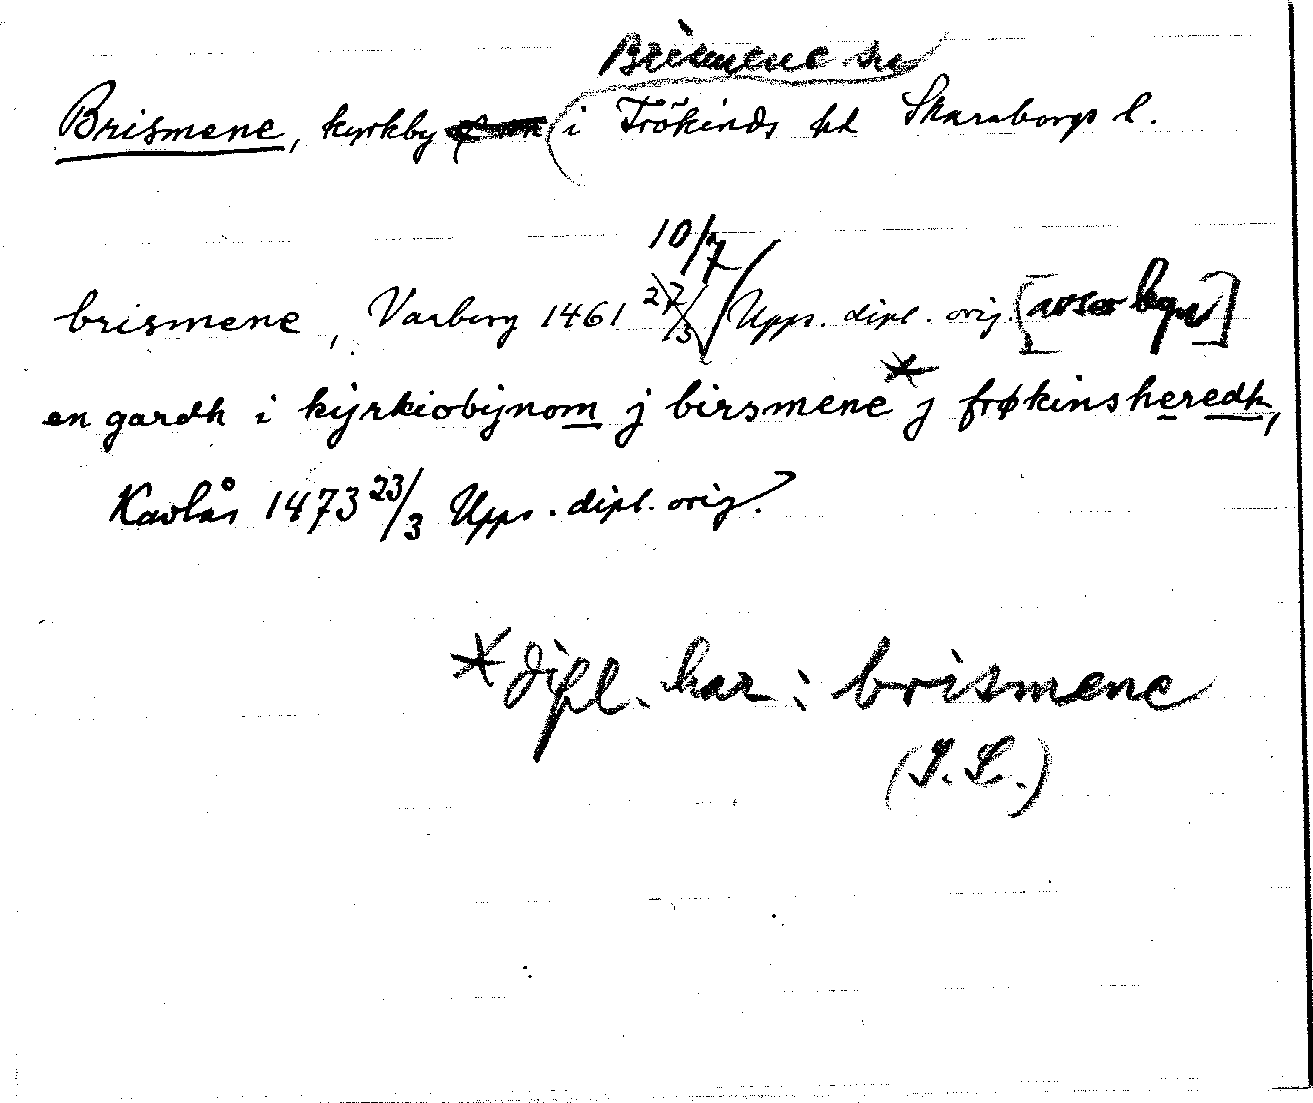 Brismene sn
Brismene, kyrkby i Frökinds hd Skaraborgs l.
10/7
brismene, Varberg 1461 27/3 Upps. dipl. orig. [avser byn]
en gardh i kÿrkiobÿnom j birsmene* j frøkinsheredh,
Kavlås 1473 23/3 Upps. dipl. orig.
* dipl. har: brismene
(I.L.)